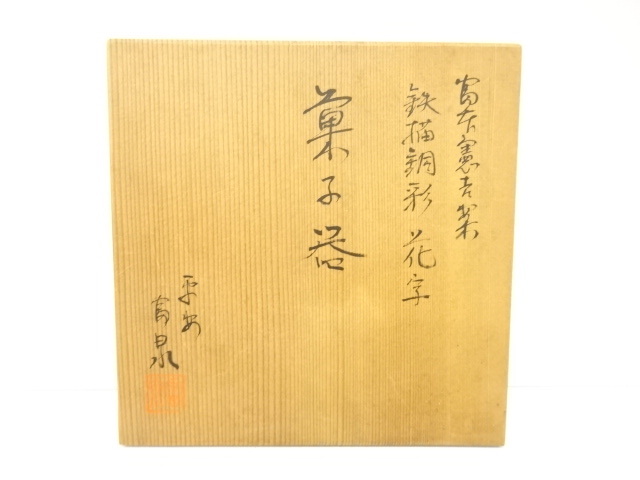 富本憲吉案
鉄描銅彩 花字
菓子器
平安
富泉